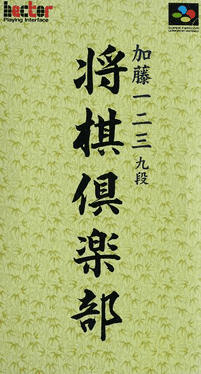 hector
Playing Interface
SUPER FAMICOM
加藤一二三九段
将棋倶楽部